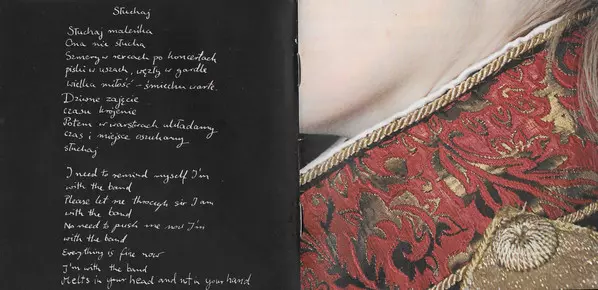 Słuchaj
Słuchaj maleńka
Ona nie słucha
Szmery w sercach po koncertach
piski w uszach, węzły w gardle
wielka miłość - śmiechu warte
Dziwne zajęcie
czasu krojenie
Potem w warstwach układamy
czas i miejsce oszukamy
słuchaj
I need to remind myself I'm
with the band
Please let me through sir I am
with the band
No need to push me now I'm
with the band
Everything is fine now
I'm with the band
Melts in your head and not in your hand